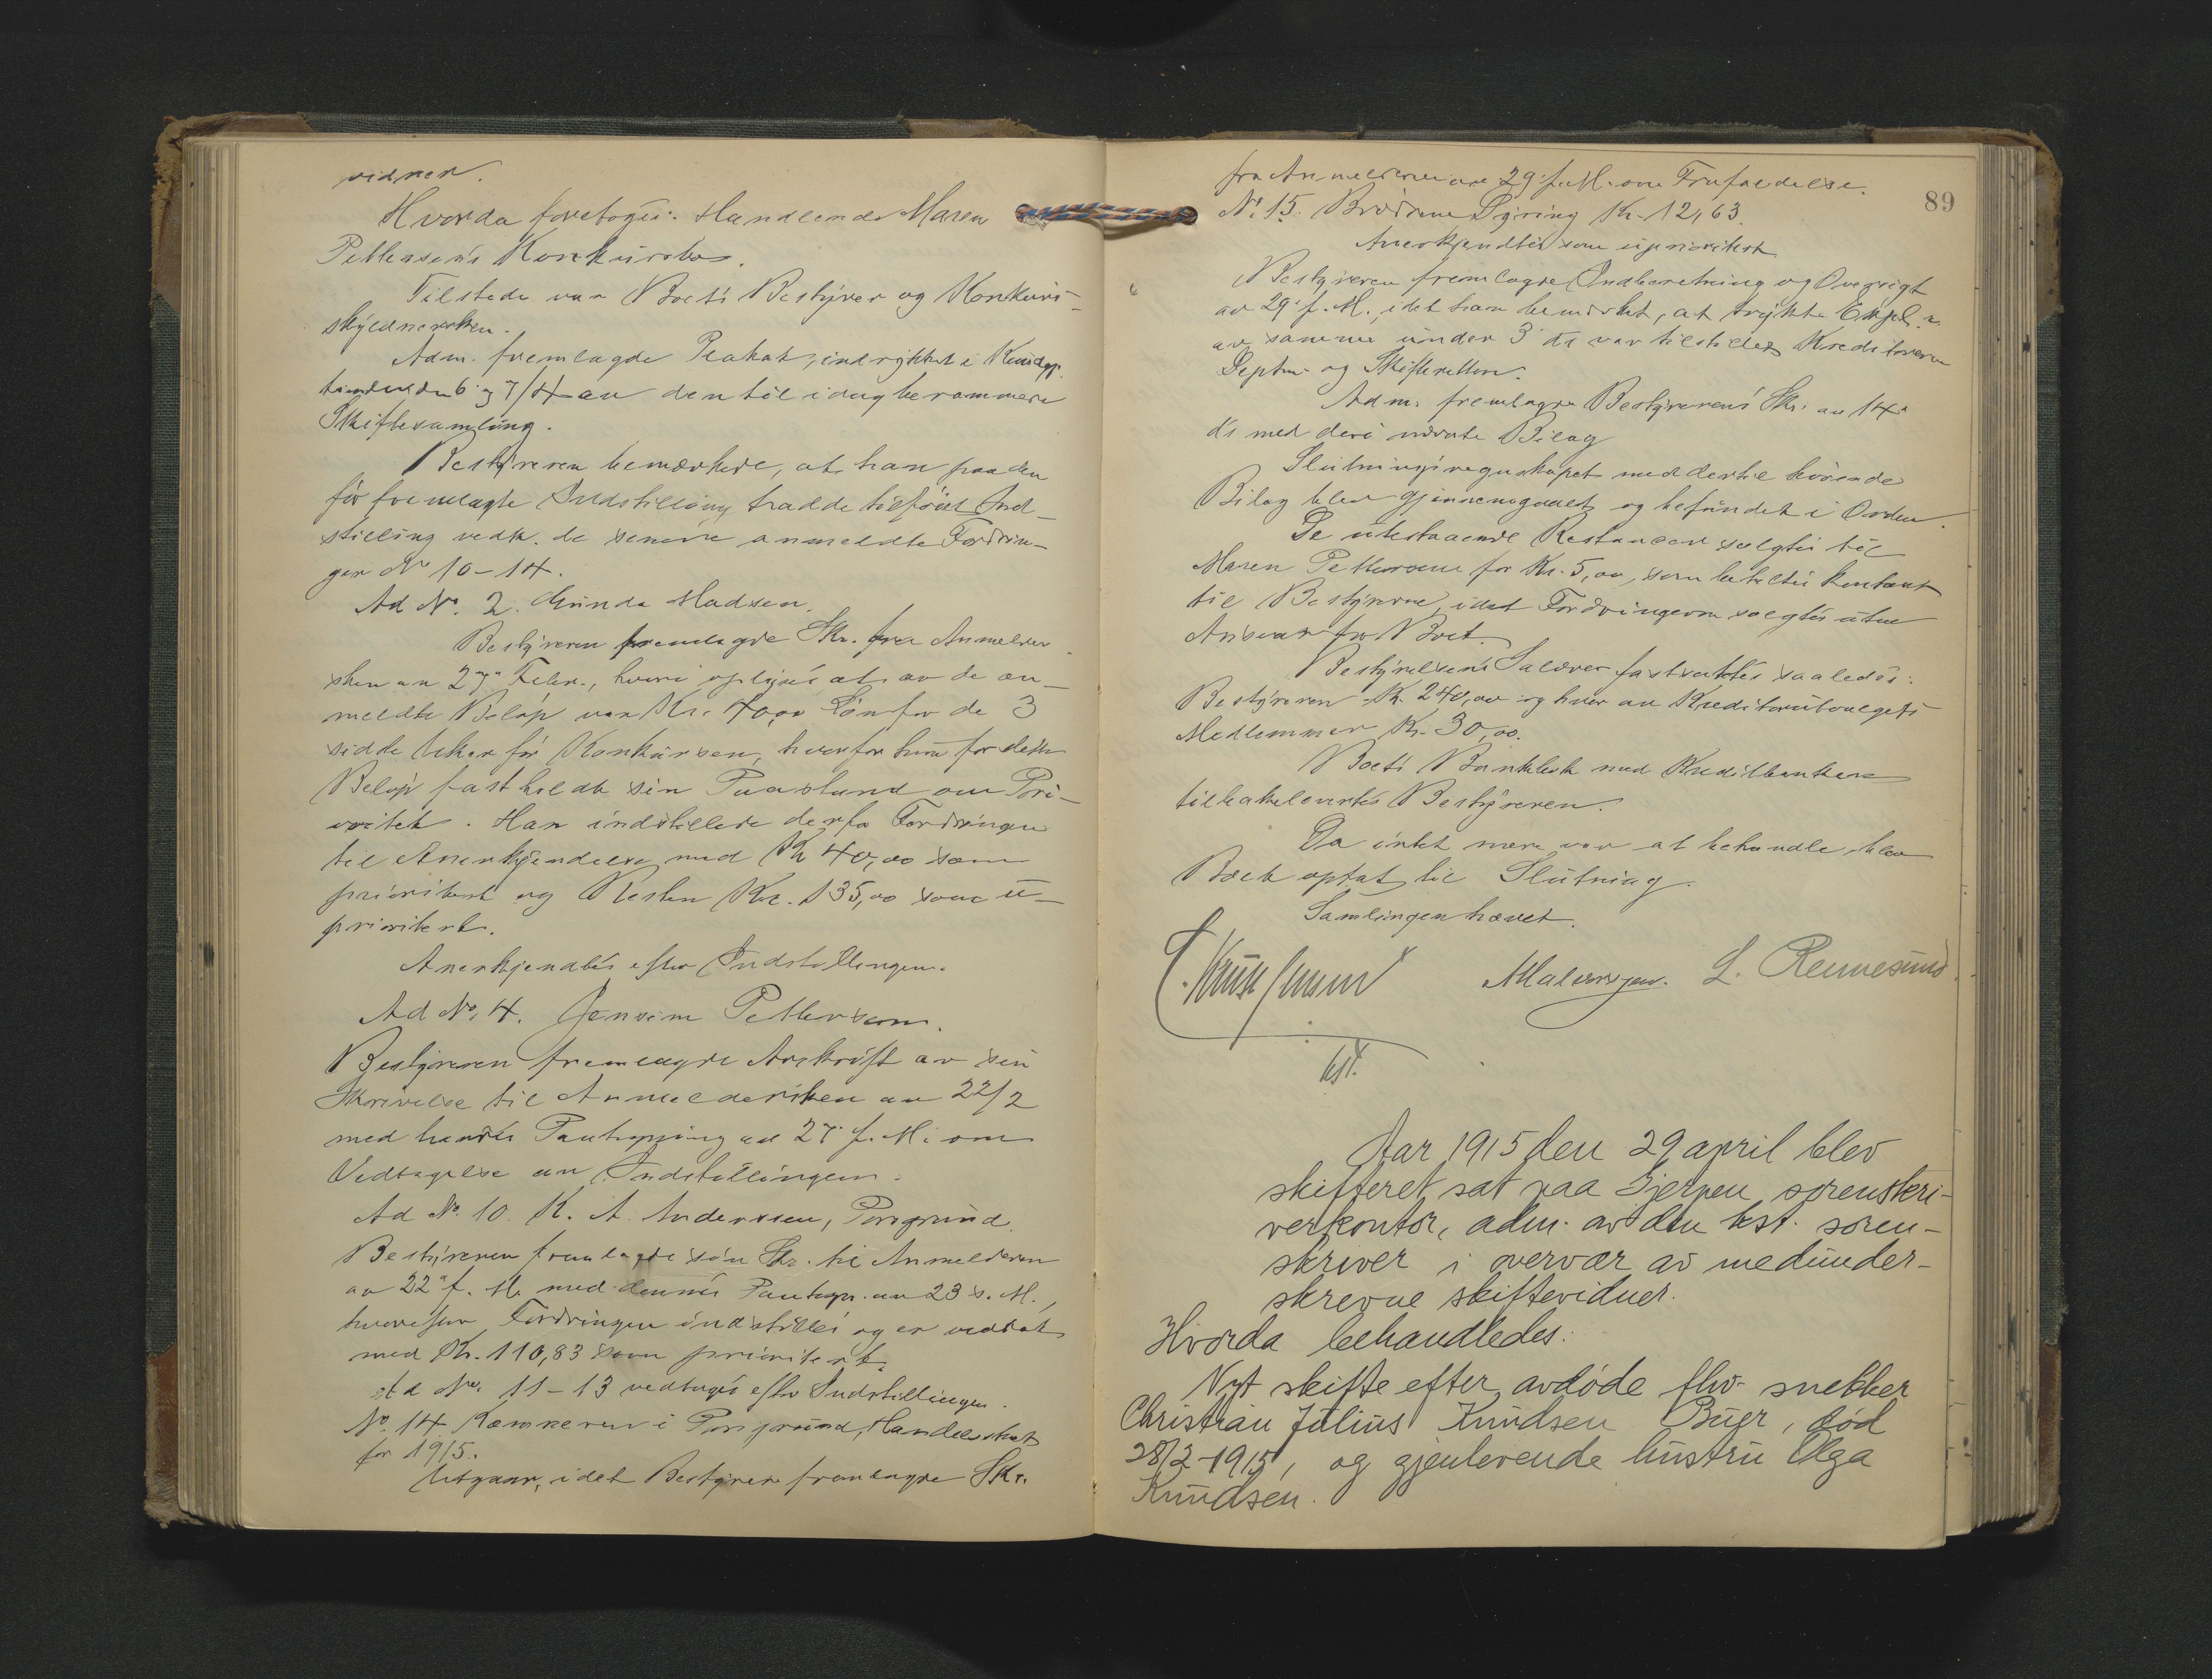 vidner.
Hvorda foretoges: Handlende Maren
Pettersens Konkursbo.
Tilstede var Boets Bestyrer og Konkurs-
skyldnersken.
Adm. fremlagde Plakat, indrykket i Kundgj.
tidende den 6 og 7/4 av den til idag berammede
Skiftesamling.
Bestyreren bemærkede, at han paa den
før fremlagte Indstilling hadde tilføiet Ind-
stilling vedk. de senere anmeldte Fordrin-
ger No 10-14.
Ad No. 2. Gunda Madsen.
Bestyreren fremlagde Skr. fra Anmelder-
sken av 27de Febr., hvori oplyses at av de an-
meldte Beløp var Kr. 40,00 Løn for de 3
sidste Uker før Konkursen, hvorfor hun for dette
Beløp fastholdt sin Paastand om Pri-
oritet. Han indstillede derfor Fordringen
til Anerkjendelse med Kr 40,00 som
prioritert og Resten Kr. 135,00 som u-
prioritert.
Anerkjendtes efter Indstillingen.
Ad No. 4. Jensine Pettersen.
Bestyreren fremlagde Avskrift av sin
Skrivelse til Anmeldersken av 22/2
med hendes Paategning av 27 f. M. om
Vedtagelse av Indstillingen.
Ad No. 10. K. A. Anderssen, Porsgrund.
Bestyreren fremlagde sin Skr. til Anmelderen
av 22 f. M. med dennes Paategn. av 23 s. M.,
hvorefter Fordringen indstilles og er vedtat
med Kr. 110,83 som prioritert.
Ad No. 11-13 vedtages efter Indstillingen.
No. 14 Kæmneren i Porsgrund, Handelsskat
for 1915.
Utgaar, idet Bestyreren fremlagde Skr.
89
fra Anmelderen av 29 f. M. om Frafaldelse.
No. 15. Brødrene Dyring Kr. 12,63.
Anerkjendtes som uprioritert.
Bestyreren fremlagde Indberetning og Oversigt
av 29 f. M., idet han bemerket, at trykte Expl.
av samme under 3 ds var tilstillet Kreditorerne
Deptm. og Skifteretten.
Adm. fremlagde Bestyrerens Skr. av 14
ds med deri nævnte Bilag
Slutningsregnskapet med dertil hørende
Bilag blev gjennemgaaet og befundet i Orden.
De utestaaende Restancer solgtes til
Maren Pettersen for Kr. 5,00, som betaltes kontant
til Bestyreren, idet Fordringerne solgtes uten
Ansvar for Boet.
Bestyrelsens Salærer fastsattes saaledes:
Bestyreren Kr. 240,00 og hver av Kreditorutvalgets
Medlemmer Kr. 30,00.
Boets Bankbok med Kreditbanken
tilbakelevertes Bestyreren.
Da intet mere var at behandle, blev
Boet optat til Slutning.
Samlingen hævet.
L. Rennesund
kst.
Aar 1915 den 29 april blev
skifteret sat paa Gjerpen sorenskri-
verkontor, adm. av den kst. soren-
skriver i overvær av medunder-
skrevne skiftevidner.
Hvorda behandledes:
Nyt skifte efter avdøde fhv. snekker
Christian Julius Knudsen Buer, død
28/2-1915, og gjenlevende hustru Olga
Knudsen.